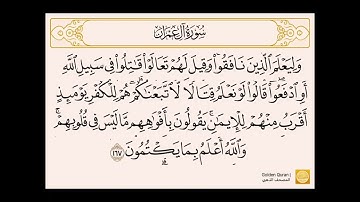 سُورَةُ آلِ عِمْرَانَ
وَلِيَعْلَمَ ٱلَّذِينَ نَافَقُوا۟ وَقِيلَ لَهُمْ تَعَالَوْا۟ قَٰتِلُوا۟ فِى سَبِيلِ ٱللَّهِ
أَوِ ٱدْفَعُوا۟ قَالُوا۟ لَوْ نَعْلَمُ قِتَالًا لَّٱتَّبَعْنَٰكُمْ هُمْ لِلْكُفْرِ يَوْمَئِذٍ
أَقْرَبُ مِنْهُمْ لِلْإِيمَٰنِ يَقُولُونَ بِأَفْوَٰهِهِم مَّا لَيْسَ فِى قُلُوبِهِمْ
وَٱللَّهُ أَعْلَمُ بِمَا يَكْتُمُونَ ١٦٧
Golden Quran |
المصحف الذهبي